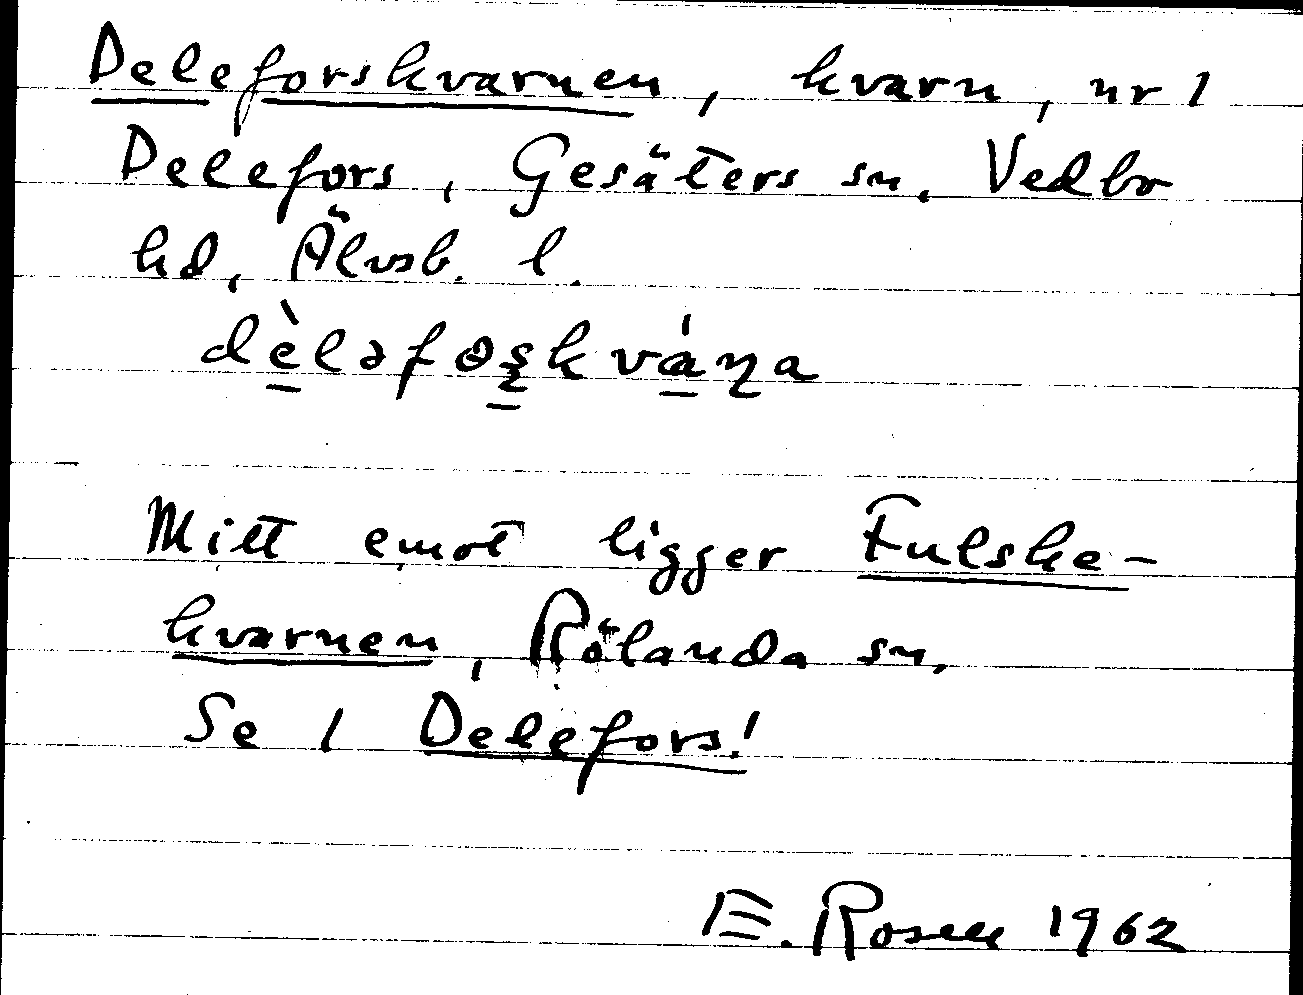 Deleforskvarnen, kvarn, nr 1
Delefors, Gesäters sn, Vedbo
hd, Älvsb. l.
dèləfoʂkváɳa
Mitt emot ligger Fulske-
kvarnen, Rölanda sn.
Se 1 Delefors!
E. Rosell 1962